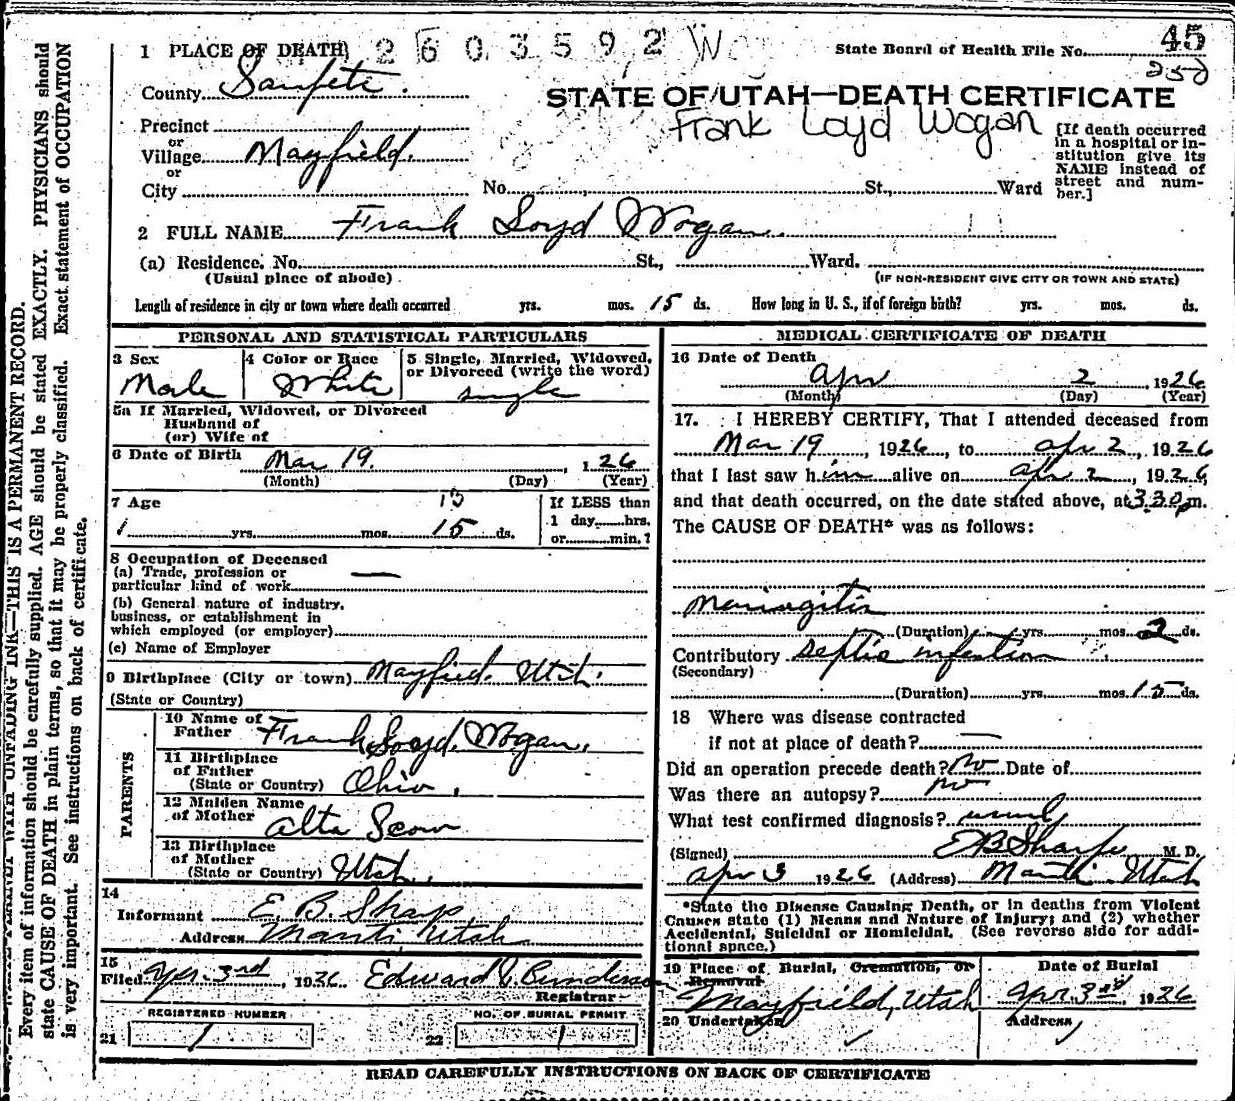 1 PLACE OF DEATH 2603592
State Board of Health File No. 45
County Sanpete.
STATE OF UTAH—DEATH CERTIFICATE
Frank Loyd Wogan
Precinct
or
Village Mayfield.
or
City No. St., Ward
[If death occurred
in a hospital or in-
stitution give its
NAME instead of
street and num-
ber.]
2 FULL NAME Frank Loyd Wogan.
(a) Residence. No. St., Ward.
(Usual place of abode) (IF NON-RESIDENT GIVE CITY OR TOWN AND STATE)
Length of residence in city or town where death occurred yrs. mos. 15 ds. How long in U. S., if of foreign birth? yrs. mos. ds.
PERSONAL AND STATISTICAL PARTICULARS
3 Sex Male
4 Color or Race White
5 Single, Married, Widowed,
or Divorced (write the word)
single
5a If Married, Widowed, or Divorced
Husband of
(or) Wife of
6 Date of Birth Mar 19. , 1 26
(Month) (Day) (Year)
7 Age
yrs. mos. 15 ds.
If LESS than
1 day, hrs.
or min.?
8 Occupation of Deceased
(a) Trade, profession or
particular kind of work —
(b) General nature of industry,
business, or establishment in
which employed (or employer)
(c) Name of Employer
9 Birthplace (City or town) Mayfield. Utah.
(State or Country)
PARENTS
10 Name of
Father Frank Loyd. Wogan.
11 Birthplace
of Father
(State or Country) Ohio.
12 Maiden Name
of Mother Alta Scow
13 Birthplace
of Mother
(State or Country) Utah.
14
Informant E. B. Sharp
Address Manti, Utah
15
Filed Apr. 3rd, 1926. Edward C. Bunderson
Registrar
REGISTERED NUMBER
21 1
NO. OF BURIAL PERMIT
22 1
MEDICAL CERTIFICATE OF DEATH
16 Date of Death
Apr 2, 1926
(Month) (Day) (Year)
17. I HEREBY CERTIFY, That I attended deceased from
Mar 19, 1926, to Apr 2, 1926
that I last saw him alive on Apr 2, 1926,
and that death occurred, on the date stated above, at 3.30 pm.
The CAUSE OF DEATH* was as follows:
Meningitis
(Duration) yrs. mos. 2 ds.
Contributory Septic infection
(Secondary)
(Duration) yrs. mos. 15 ds.
18 Where was disease contracted
if not at place of death? —
Did an operation precede death? No Date of
Was there an autopsy? no
What test confirmed diagnosis? usual
(Signed) E B Sharp M. D.
Apr 3 1926 (Address) Manti. Utah
*State the Disease Causing Death, or in deaths from Violent
Causes state (1) Means and Nature of Injury; and (2) whether
Accidental, Suicidal or Homicidal. (See reverse side for addi-
tional space.)
19 Place of Burial, Cremation, or
Removal
Mayfield, Utah
Date of Burial
Apr. 3rd, 1926
20 Undertaker
Address
READ CAREFULLY INSTRUCTIONS ON BACK OF CERTIFICATE
WITH UNFADING INK—THIS IS A PERMANENT RECORD.
Every item of information should be carefully supplied. AGE should be stated EXACTLY. PHYSICIANS should
state CAUSE OF DEATH in plain terms, so that it may be properly classified. Exact statement of OCCUPATION
is very important. See instructions on back of certificate.